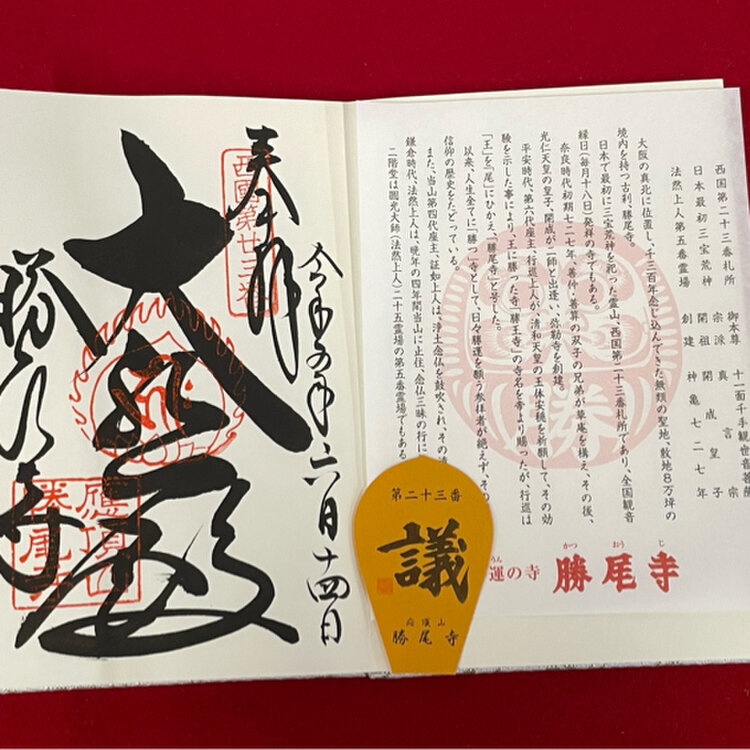 西国第二十三番札所
日本最初三宝荒神
法然上人第五番霊場
御本尊 十一面千手観世音菩薩
宗派 真言宗
開祖 開成皇子
創建 神亀七二七年
大阪の真北に位置し、千三百年念じ込んできた無類の聖地、敷地8万坪の
境内を持つ古刹、勝尾寺。
日本で最初に三宝荒神を祀った霊山、西国第二十三番札所であり、全国観音
縁日(毎月十八日)発祥の寺でもある。
奈良時代初期七二七年、善仲・善算の双子の兄弟が草庵を構え、その後、
光仁天皇の皇子、開成が二師と出逢い、弥勒寺を創建。
平安時代、第六代座主、行巡上人が、清和天皇の玉体安穏を祈願して、その効
験を示した事により、「王に勝った寺、勝王寺」の寺名を帝より賜ったが、行巡は
「王」を「尾」にひかえ、「勝尾寺」と号した。
以来、人生全てに「勝つ」寺として、日々勝運を願う参拝者が絶えず、その
信仰の歴史をたどっている。
また、当山第四代座主、証如上人は、浄土念仏を鼓吹され、その
鎌倉時代、法然上人は、晩年の四年間当山に止住、念仏三昧の行に
二階堂は圓光大師(法然上人)二十五霊場の第五番霊場でもある
勝
運の寺 勝尾寺
うん かつ おう じ
第二十三番
議
応頂山
勝尾寺
令和五年六月十四日
奉拝
西國第廿三番
大悲殿
勝尾寺
應頂山
勝尾寺